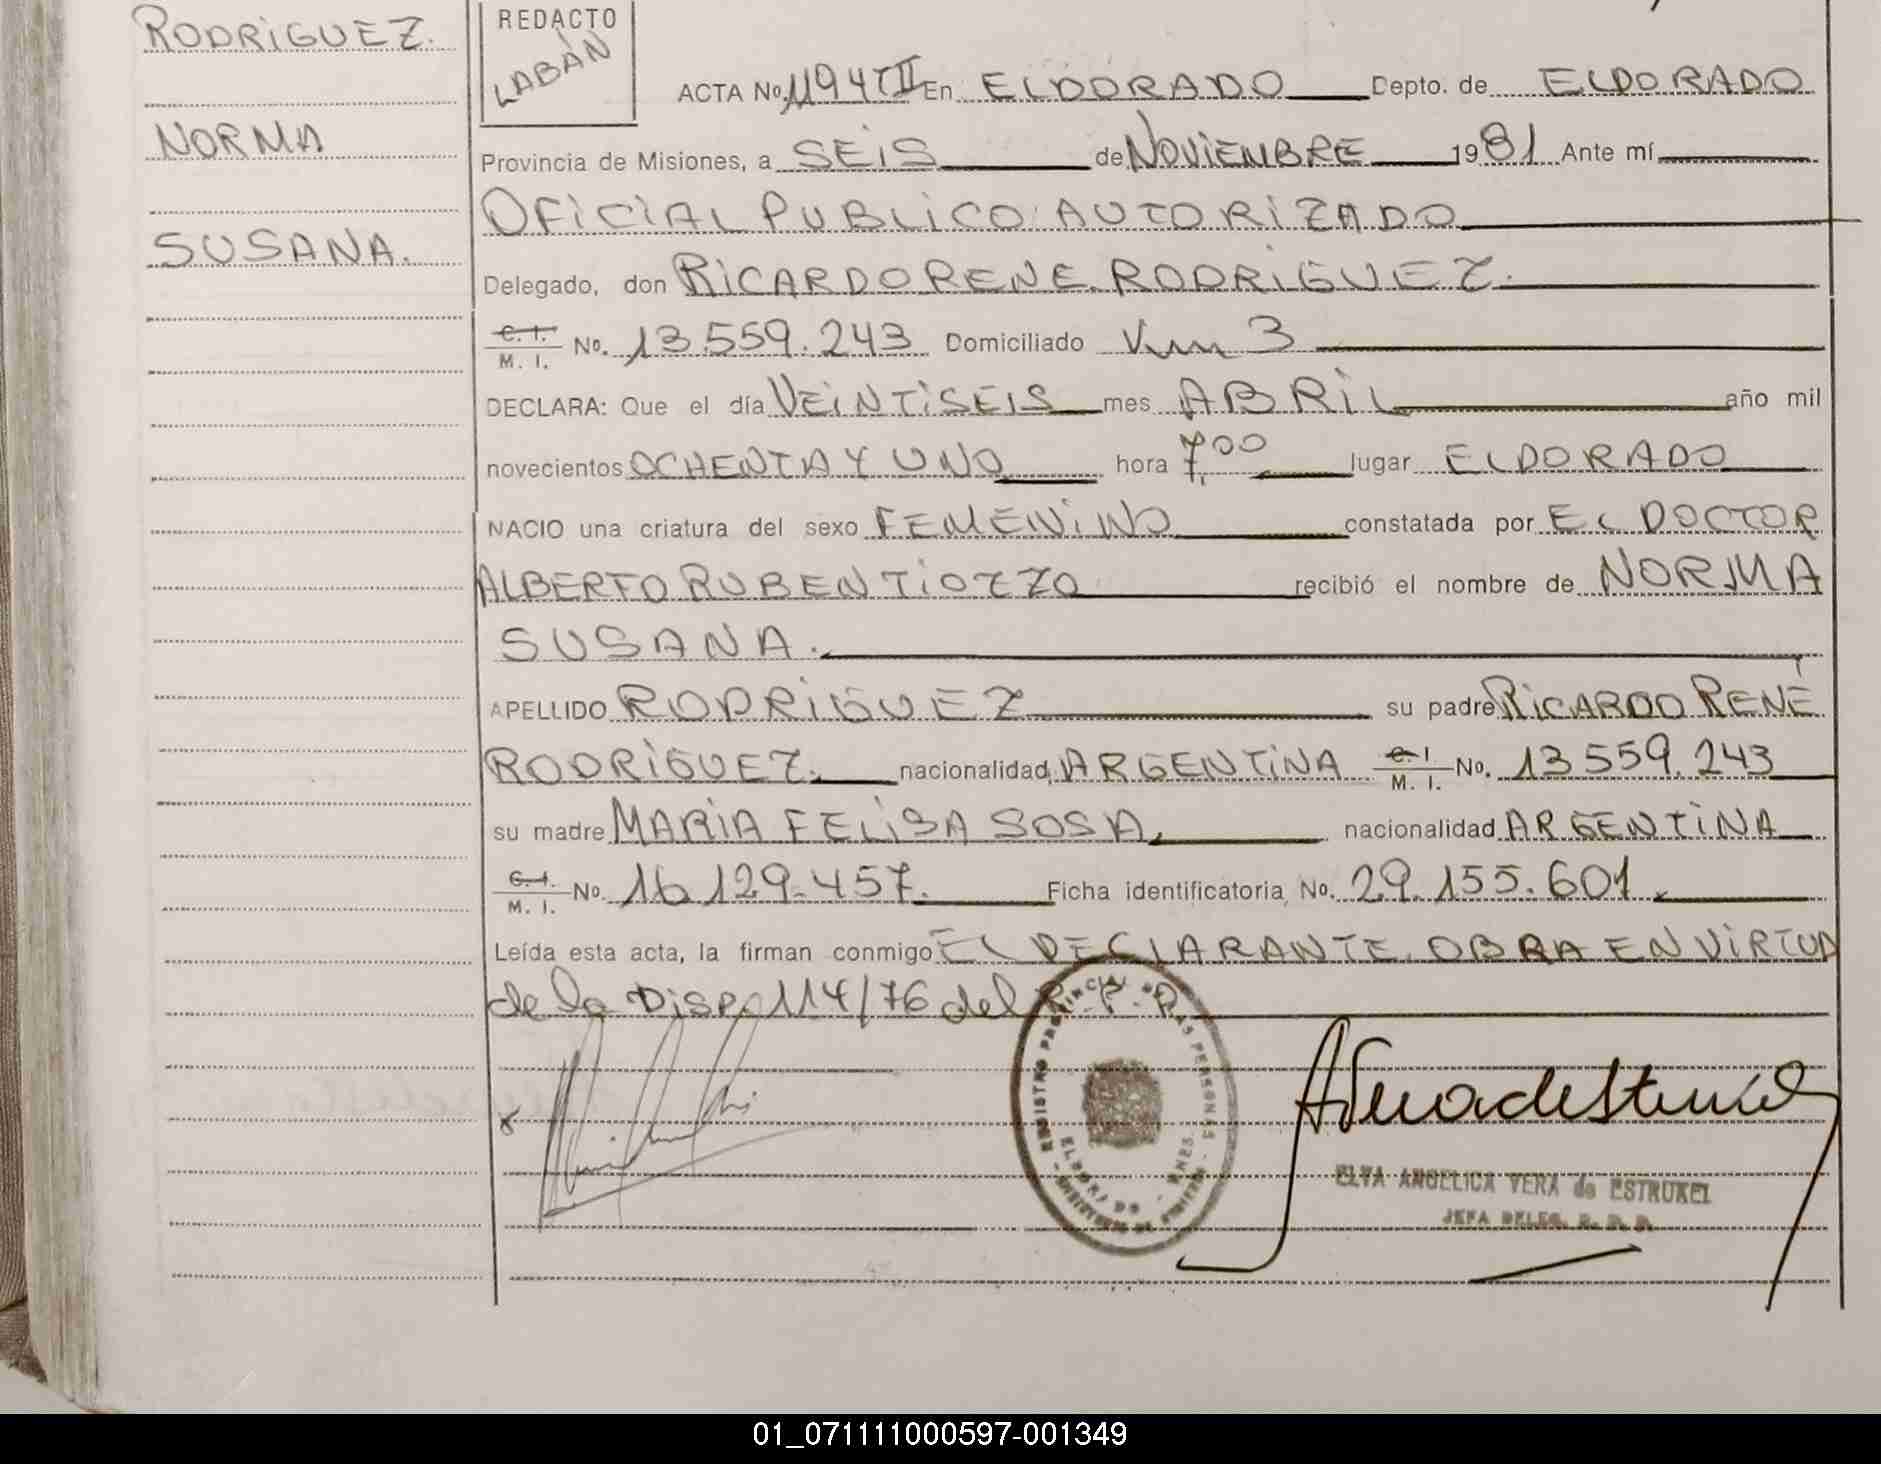 RODRIGUEZ.
NORMA
SUSANA.
REDACTO
LABÁN
ACTA No. 1194 TII En ELDORADO Depto. de ELDORADO
Provincia de Misiones, a SEIS de NOVIEMBRE 1981 Ante mí
OFICIAL PUBLICO AUTORIZADO
Delegado, don RICARDO RENE RODRIGUEZ.
C. I.
M. I. No. 13.559.243 Domiciliado Km 3
DECLARA: Que el día VEINTISEIS mes ABRIL año mil
novecientos OCHENTA Y UNO hora 7,00 lugar ELDORADO
NACIO una criatura del sexo FEMENINO constatada por EL DOCTOR
ALBERTO RUBEN TIOZZO recibió el nombre de NORMA
SUSANA.
APELLIDO RODRIGUEZ su padre RICARDO RENÉ
RODRIGUEZ. nacionalidad ARGENTINA C. I.
M. I. No. 13.559.243
su madre MARIA FELISA SOSA. nacionalidad ARGENTINA
C. I.
M. I. No. 16.129.457. Ficha identificatoria No. 29.155.601.
Leída esta acta, la firman conmigo EL DECLARANTE. OBRA EN VIRTUD
de la Disp. 114/76 del R. P. P.
REGISTRO PROVINCIAL DE LAS PERSONAS
ELDORADO - MNES.
ELVA ANGELICA VERA de ESTRUKEL
JEFA DELEG. R. P. P.
01_071111000597-001349